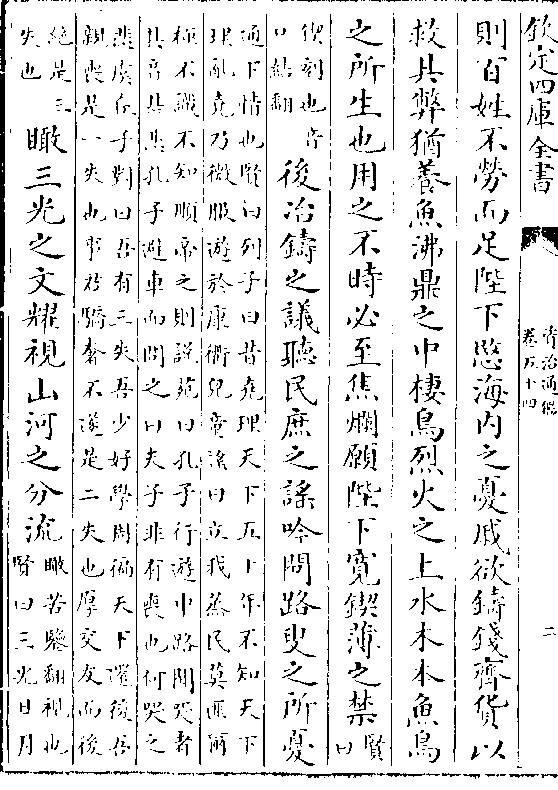 欽定四庫全書
資治通鑑
卷五十四
二
則百姓不勞而足陛下愍海内之憂戚欲鑄錢齊貨以
救其弊猶養魚沸鼎之中棲鳥烈火之上水木本魚鳥
之所生也用之不時必至焦爛願陛下寬鍥薄之禁賢曰
鍥刻也音
口結翻
後冶鑄之議聽民庶之謠吟問路叟之所憂
通下情也賢曰列子曰昔堯理天下五十年不知天下
理亂堯乃微服遊於康衢兒童謠曰立我蒸民莫匪爾
極不識不知順帝之則說苑曰孔子行遊中路聞哭者
其音甚悲孔子避車而問之曰夫子非有喪也何哭之
悲虞丘子對曰吾有三失吾少好學周徧天下還後吾
親喪是一失也事君驕奢不遂是二失也厚交友而後
絶是三
失也
瞰三光之文耀視山河之分流
瞰苦鑒翻視也
賢曰三光日月